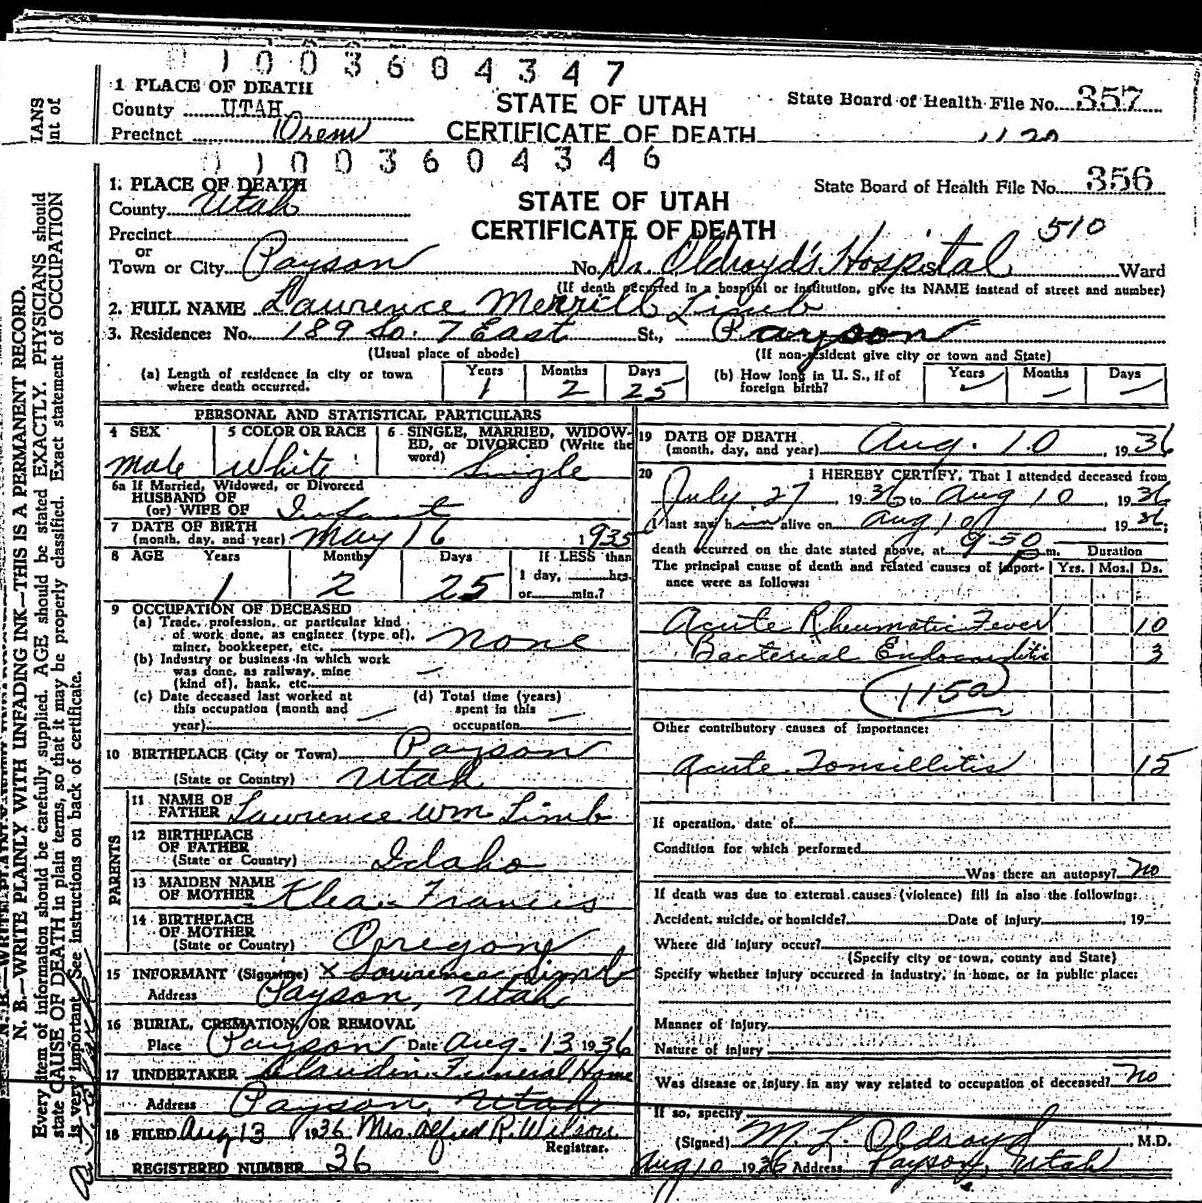 0 1 0 0 3 6 0 4 3 4 7
1 PLACE OF DEATH
County UTAH
Precinct Orem
STATE OF UTAH
CERTIFICATE OF DEATH
State Board of Health File No. 357
0 1 0 0 3 6 0 4 3 4 6
1. PLACE OF DEATH
County Utah
Precinct
or
Town or City Payson
STATE OF UTAH
CERTIFICATE OF DEATH
State Board of Health File No. 356
510
No. Dr. Oldroyd's Hospital St. Ward
(If death occurred in a hospital or institution, give its NAME instead of street and number)
2. FULL NAME Lawrence Merrill Limb
3. Residence: No. 189 So. 7 East St., Payson
(Usual place of abode)
(If non-resident give city or town and State)
(a) Length of residence in city or town where death occurred. Years 1 Months 2 Days 25
(b) How long in U. S., if of foreign birth? Years — Months — Days —
PERSONAL AND STATISTICAL PARTICULARS
4 SEX Male
5 COLOR OR RACE White
6 SINGLE, MARRIED, WIDOWED, or DIVORCED (Write the word) Single
6a If Married, Widowed, or Divorced
HUSBAND OF
(or) WIFE OF Infant
7 DATE OF BIRTH
(month, day, and year) May 16 1935
8 AGE Years 1 Months 2 Days 25 If LESS than
1 day, hrs.
or min.?
9 OCCUPATION OF DECEASED
(a) Trade, profession, or particular kind
of work done, as engineer (type of),
miner, bookkeeper, etc. none
(b) Industry or business in which work
was done, as railway, mine
(kind of), bank, etc. —
(c) Date deceased last worked at
this occupation (month and
year) —
(d) Total time (years)
spent in this
occupation —
10 BIRTHPLACE (City or Town) Payson
(State or Country) Utah
PARENTS
11 NAME OF
FATHER Lawrence Wm Limb
12 BIRTHPLACE
OF FATHER
(State or Country) Idaho
13 MAIDEN NAME
OF MOTHER Klea Francis
14 BIRTHPLACE
OF MOTHER
(State or Country) Oregon
15 INFORMANT (Signature) x Lawrence Limb
Address Payson, Utah
16 BURIAL, CREMATION, OR REMOVAL
Place Payson Date Aug. 13 1936
17 UNDERTAKER Claudin Funeral Home
Address Payson, Utah
18 FILED Aug 13 1936 Mrs. Alfred R. Wilson
Registrar.
REGISTERED NUMBER 36
19 DATE OF DEATH
(month, day, and year) Aug. 10, 1936
20 I HEREBY CERTIFY, That I attended deceased from
July 27 1936 to Aug 10, 1936
I last saw him alive on Aug 10 1936;
death occurred on the date stated above, at 9:50 p m.
The principal cause of death and related causes of importance were as follows:
Duration
Yrs. Mos. Ds.
Acute Rheumatic Fever 10
Bacterial Endocarditis 3
115a
Other contributory causes of importance:
Acute Tonsillitis 15
If operation, date of
Condition for which performed
Was there an autopsy? No
If death was due to external causes (violence) fill in also the following:
Accident, suicide, or homicide? Date of injury, 19
Where did injury occur?
(Specify city or town, county and State)
Specify whether injury occurred in industry, in home, or in public place:
Manner of injury
Nature of injury
Was disease or injury in any way related to occupation of deceased? No
If so, specify
(Signed) M. L. Oldroyd M.D.
Aug 10 1936 Address Payson, Utah
N. B.—WRITE PLAINLY WITH UNFADING INK—THIS IS A PERMANENT RECORD.
Every item of information should be carefully supplied. AGE should be stated EXACTLY. PHYSICIANS should
state CAUSE OF DEATH in plain terms, so that it may be properly classified. Exact statement of OCCUPATION
is very important. See instructions on back of certificate.